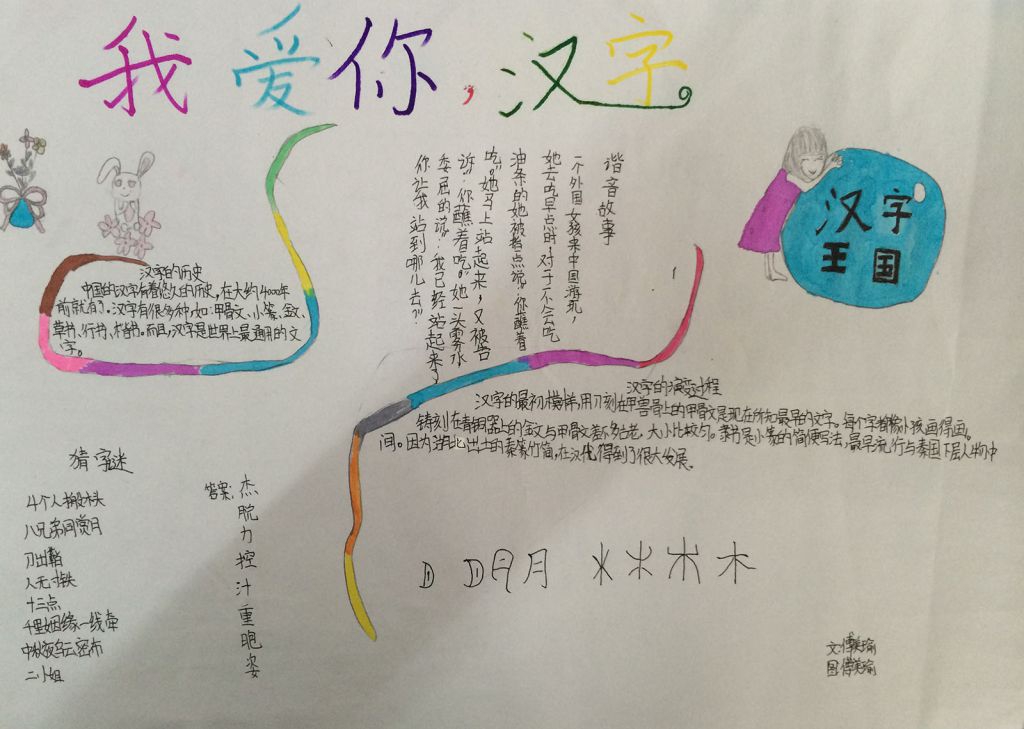 我爱你,汉字
汉字的历史
中国的汉字有着悠久的历史,在大约4000年
前就有了。汉字有很多种,如:甲骨文、小篆、金文、
草书、行书、楷书。而且,汉字是世界上最通用的文
字。
谐音故事
一个外国女孩来中国游玩,
她去吃早点时,对于一个会吃
油条的她被档点说:“你蘸着
吃。”她马上站起来,又被告
诉:“你蘸着吃。”她一头雾水
委屈的说:“我已经站起来了
你让我站到哪儿去?”
汉字
王国
汉字的演变过程
汉字的最初模样,用刀刻在甲兽骨上的甲骨文是现在所知最早的文字。每个字都像小孩画得画。
铸刻在青铜器上的金文与甲骨文差不多古老,大小比较匀。隶书是小篆的简便写法,最早流行与秦国下层人物中
间。因为湖北出土的秦篆竹简,在汉代得到了很大发展。
猜字谜
4个人搬木头
八兄弟同赏月
刀出鞘
人无寸铁
十三点
千里姻缘一线牵
中秋夜乌云密布
二小姐
答案:
杰
脱
力
控
汁
重
脃
姿
月
木
文:傅美瑜
图:傅美瑜